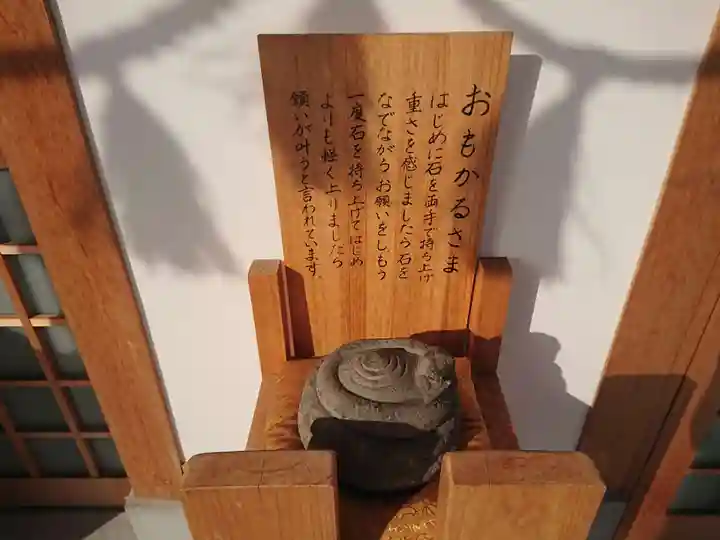 おもかるさま
はじめに石を両手で持ち上げ
重さを感じましたら石を
なでながらお願いをしもう
一度石を持ち上げてはじめ
よりも軽く上りましたら
願いが叶うと言われています。